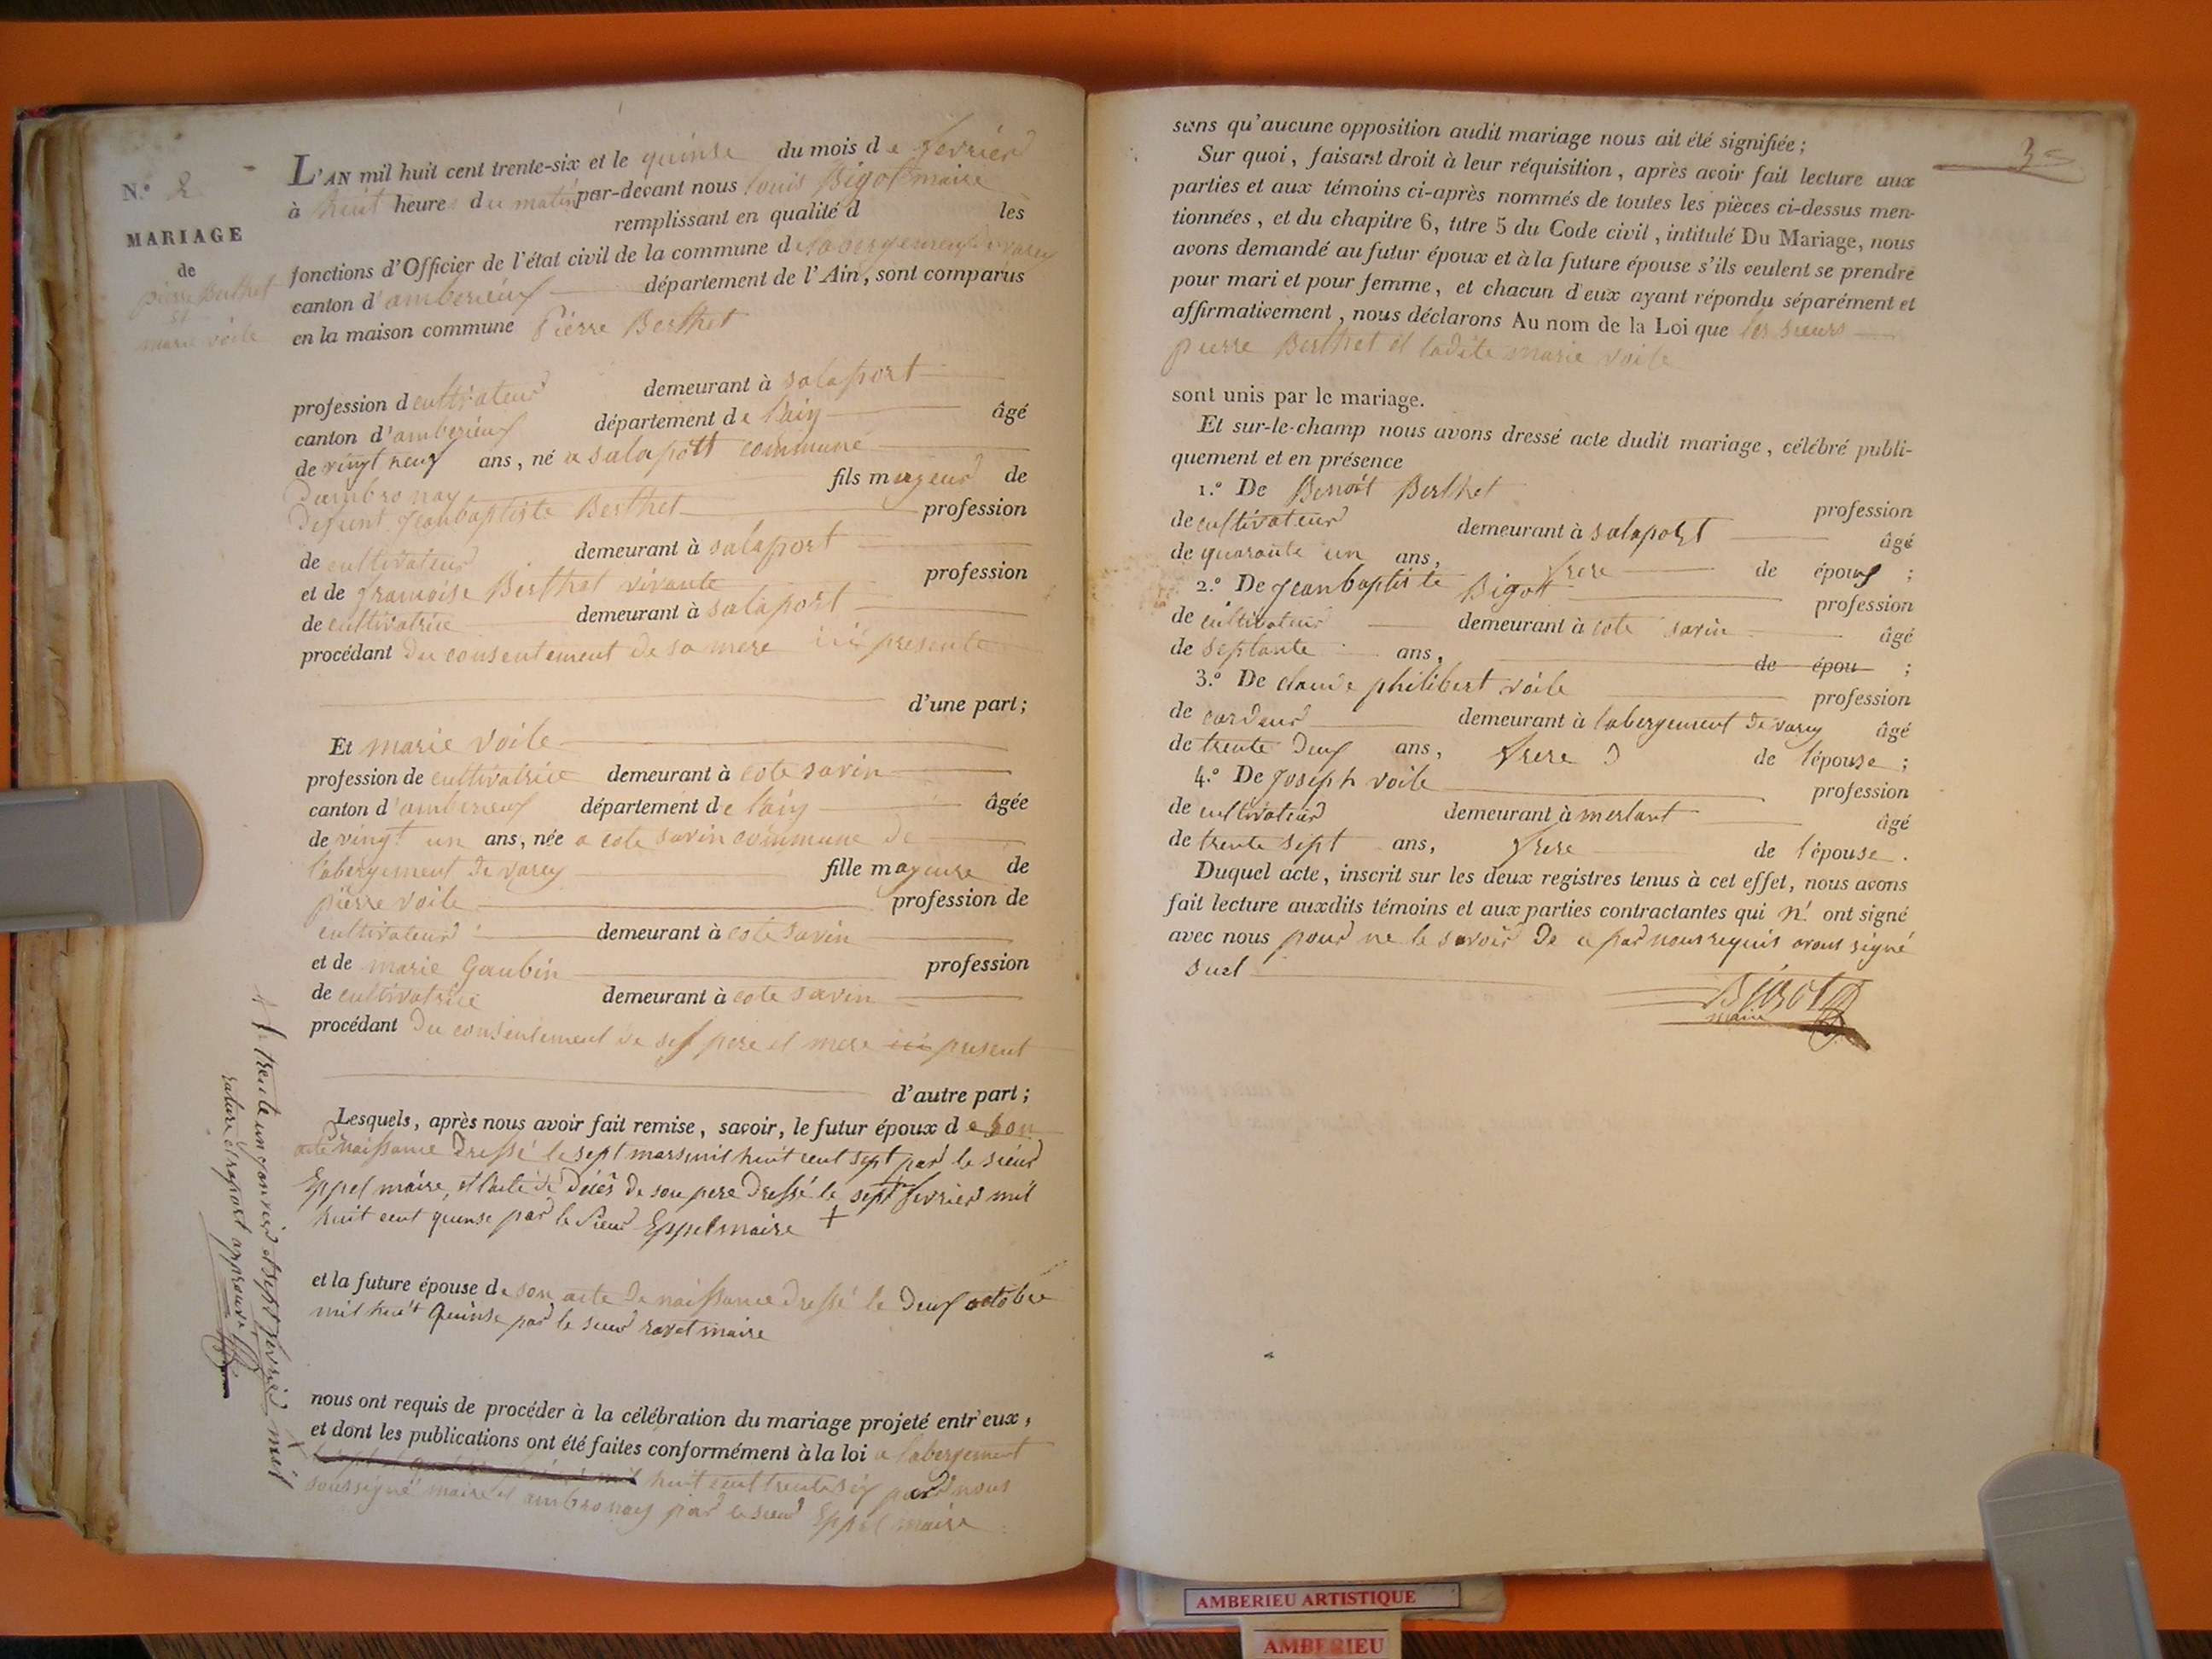 N.º 2
MARIAGE
de
pierre Berthet
et
marie voile
L'AN mil huit cent trente-six et le quinse du mois de fevrier
à huit heures du matin par-devant nous louis Bigot maire
remplissant en qualité d les
fonctions d'Officier de l'état civil de la commune de labergement de varey
canton d'amberieux département de l'Ain, sont comparus
en la maison commune Pierre Berthet
profession d cultivateur demeurant à salaport
canton d'amberieux département de lain âgé
de vingt neuf ans, né a salaport commune
dambronay fils mayeur de
defunt jeanbaptiste Berthet profession
de cultivateur demeurant à salaport
et de francoise Berthet vivante profession
de cultivatrice demeurant à salaport
procédant du consentement de sa mere ici presente
d'une part;
Et marie voile
profession de cultivatrice demeurant à cote savin
canton d'amberieux département de lain âgée
de vingt un ans, née a cote savin commune de
labergement de varey fille mayeure de
pierre voile profession de
cultivateur demeurant à cote savin
et de marie Gaubin profession
de cultivatrice demeurant à cote savin
procédant du consentement de ses pere et mere ici present
d'autre part;
Lesquels, après nous avoir fait remise, savoir, le futur époux de son
acte naissance dressé le sept mars mil huit cent sept par le sieur
Eppel maire, et lacte de décès de son pere dressé le sept fevrier mil
huit cent quinse par le sieur Eppel maire +
et la future épouse de son acte de naissance dressé le deux octobre
mil huit quinse par le sieur ravet maire
nous ont requis de procéder à la célébration du mariage projeté entr'eux,
et dont les publications ont été faites conformément à la loi a labergement
huit cent trente six par nous
soussigné maire et ambronay par le sieur Eppel maire
trente un janvier et sept fevrier mil
rature et raport approuvé
3
sans qu'aucune opposition audit mariage nous ait été signifiée;
Sur quoi, faisant droit à leur réquisition, après avoir fait lecture aux
parties et aux témoins ci-après nommés de toutes les pièces ci-dessus men-
tionnées, et du chapitre 6, titre 5 du Code civil, intitulé Du Mariage, nous
avons demandé au futur époux et à la future épouse s'ils veulent se prendre
pour mari et pour femme, et chacun d'eux ayant répondu séparément et
affirmativement, nous déclarons Au nom de la Loi que les sieurs
pierre Berthet et ladite marie voile
sont unis par le mariage.
Et sur-le-champ nous avons dressé acte dudit mariage, célébré publi-
quement et en présence
1.º De Benoit Berthet profession
de cultivateur demeurant à salaport âgé
de quarante un ans, frere de époux ;
2.º De jeanbaptiste Bigot profession
de cultivateur demeurant à cote savin âgé
de septante ans, de épou ;
3.º De claude philibert voile profession
de cardeur demeurant à labergement de varey âgé
de trente deux ans, frere de l'épouse ;
4.º De joseph voile profession
de cultivateur demeurant à merlant âgé
de trente sept ans, frere de l'épouse .
Duquel acte, inscrit sur les deux registres tenus à cet effet, nous avons
fait lecture auxdits témoins et aux parties contractantes qui n' ont signé
avec nous pour ne le savoir de ce par nous requis avons signé
suel
BIGOT
maire
AMBERIEU ARTISTIQUE
AMBERIEU